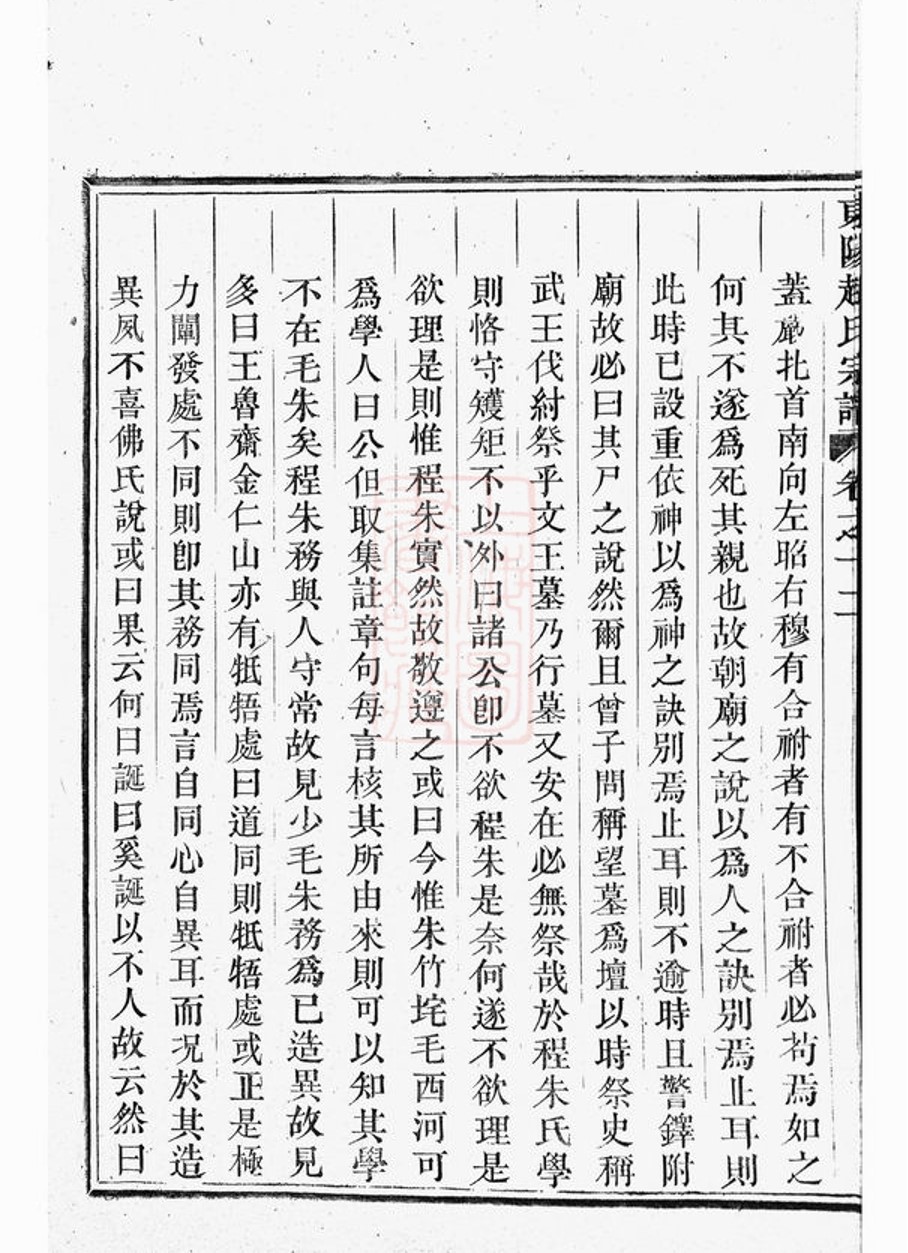 東陽趙氏宗譜 卷之十二
蓋嚴扎首南向左昭右穆有合祔者有不合祔者必茍焉如之
何其不遂爲死其親也故朝廟之說以爲人之訣別焉止耳則
此時已設重依神以爲神之訣別焉止耳則不逾時且警鐸附
廟故必曰其尸之說然爾且曾子問稱望墓爲壇以時祭史稱
武王伐紂祭乎文王墓乃行墓又安在必無祭哉於程朱氏學
則恪守矱矩不以外曰諸公卽不欲程朱是奈何遂不欲理是
欲理是則惟程朱實然故敬遵之或曰今惟朱竹垞毛西河可
爲學人曰公但取集註章句每言核其所由來則可以知其學
不在毛朱矣程朱務與人守常故見少毛朱務爲已造異故見
多曰王魯齋金仁山亦有牴牾處曰道同則牴牾處或正是極
力闡發處不同則卽其務同焉言自同心自異耳而况於其造
異夙不喜佛氏說或曰果云何曰誕曰奚誕以不人故云然曰